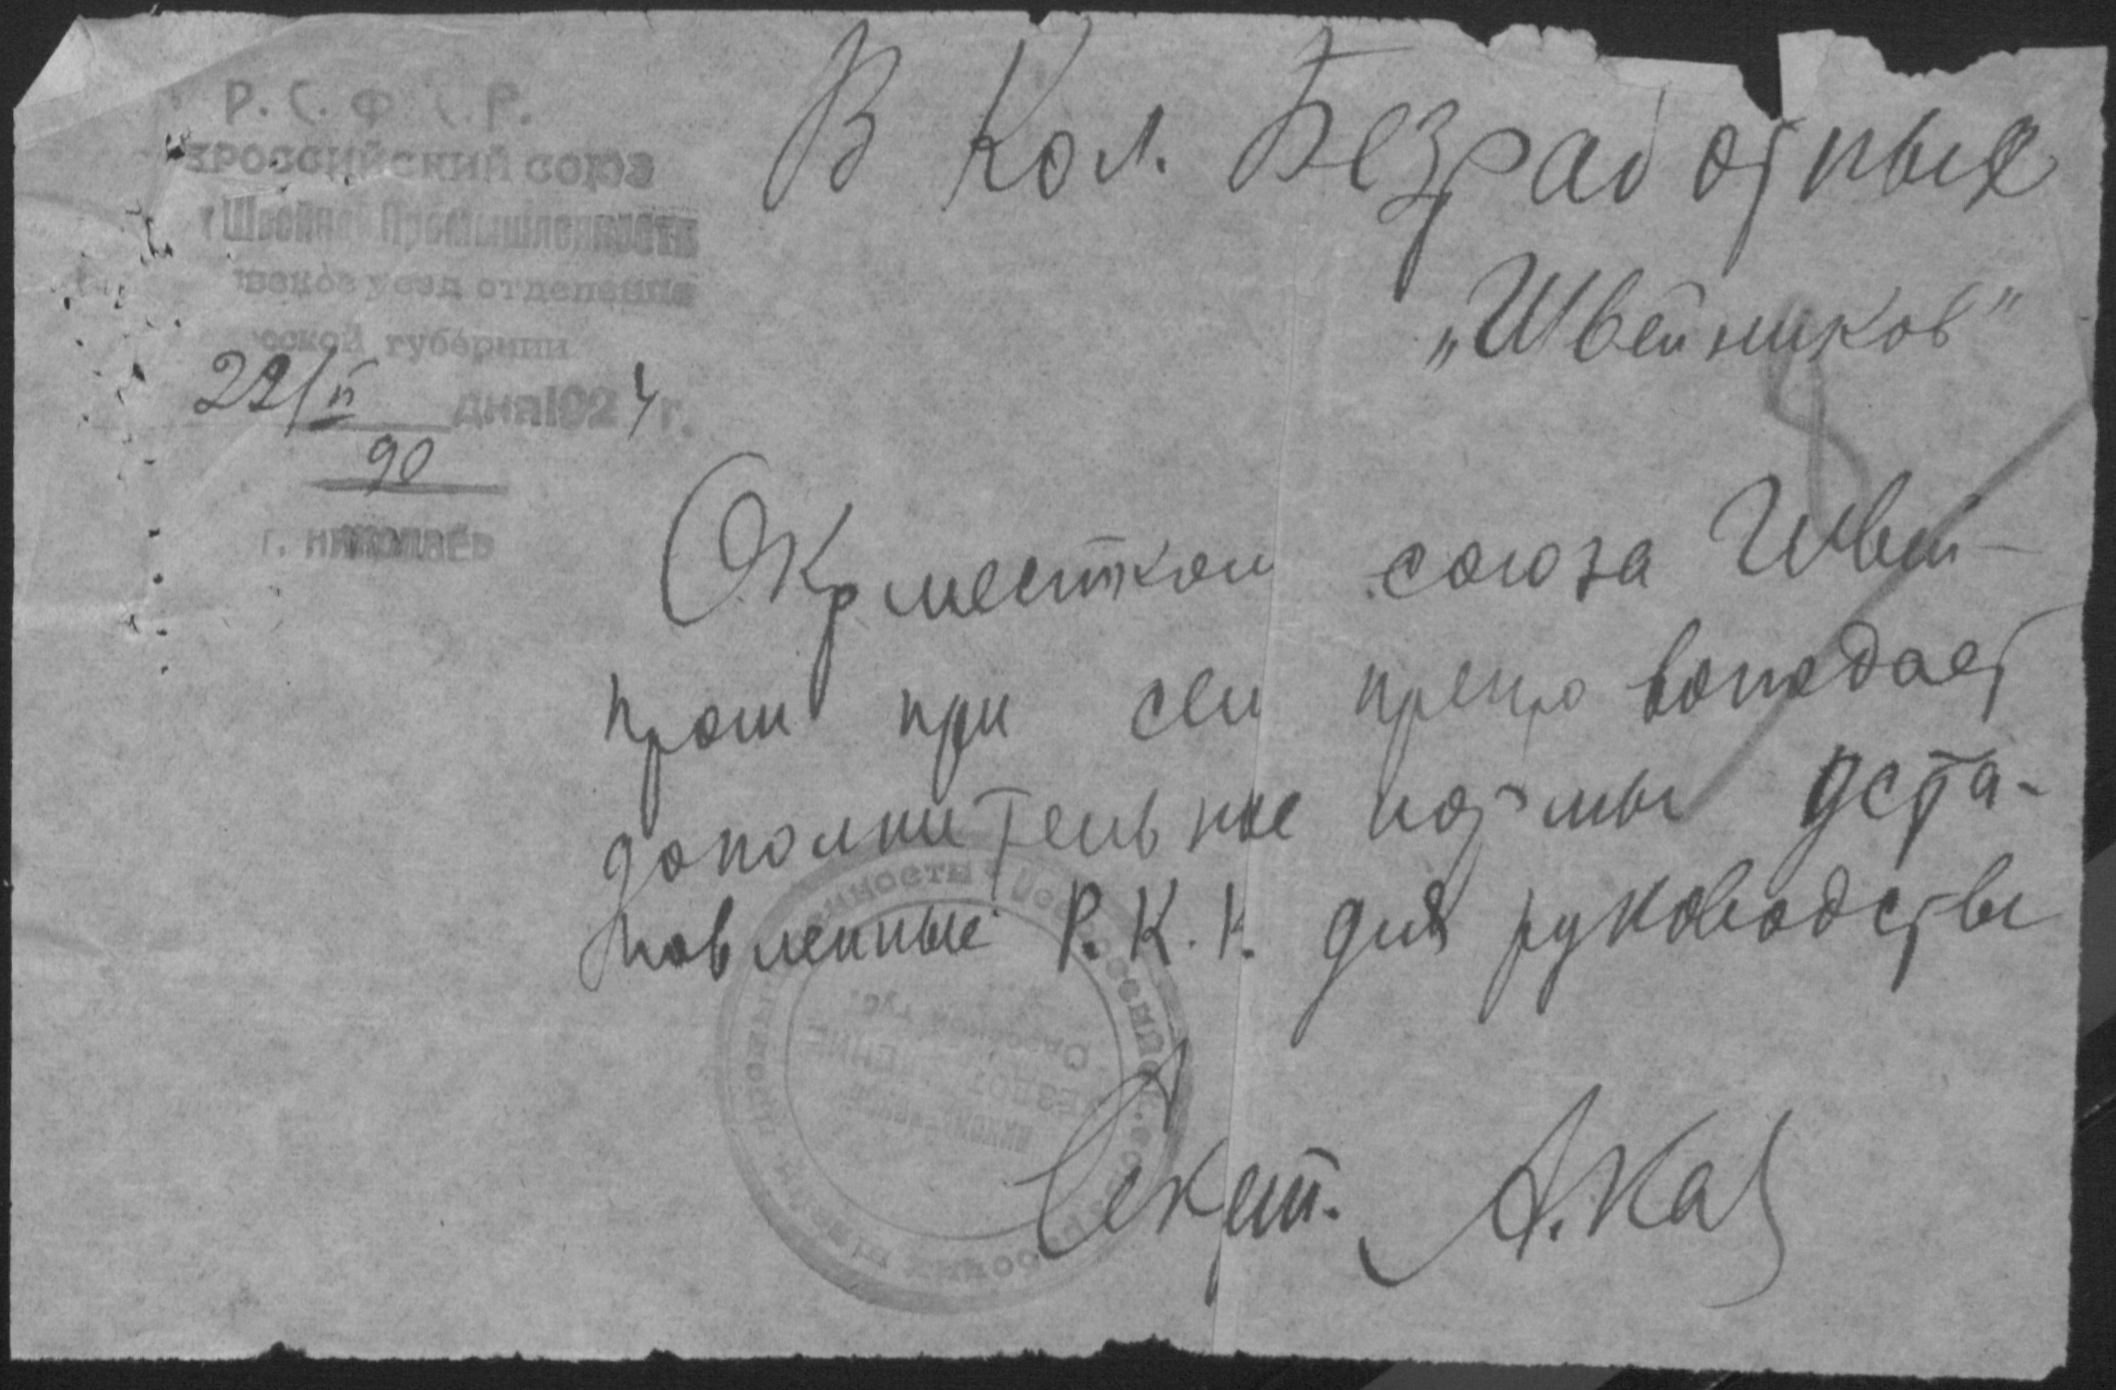 Р. С. Ф. С. Р.
РОССИЙСКИЙ СОЮЗ
Швейной Промышленности
уезд отделение
губернии
22/II дня 1924 г.
90
г. НИКОЛАЕВ
В Кол. Безработных
„Швейников"
8
Окрместком союза Швей-
пром при сем препровождает
дополнительные нормы уста-
новленные Р.К.К. для руководства
Секрет. А. Кац